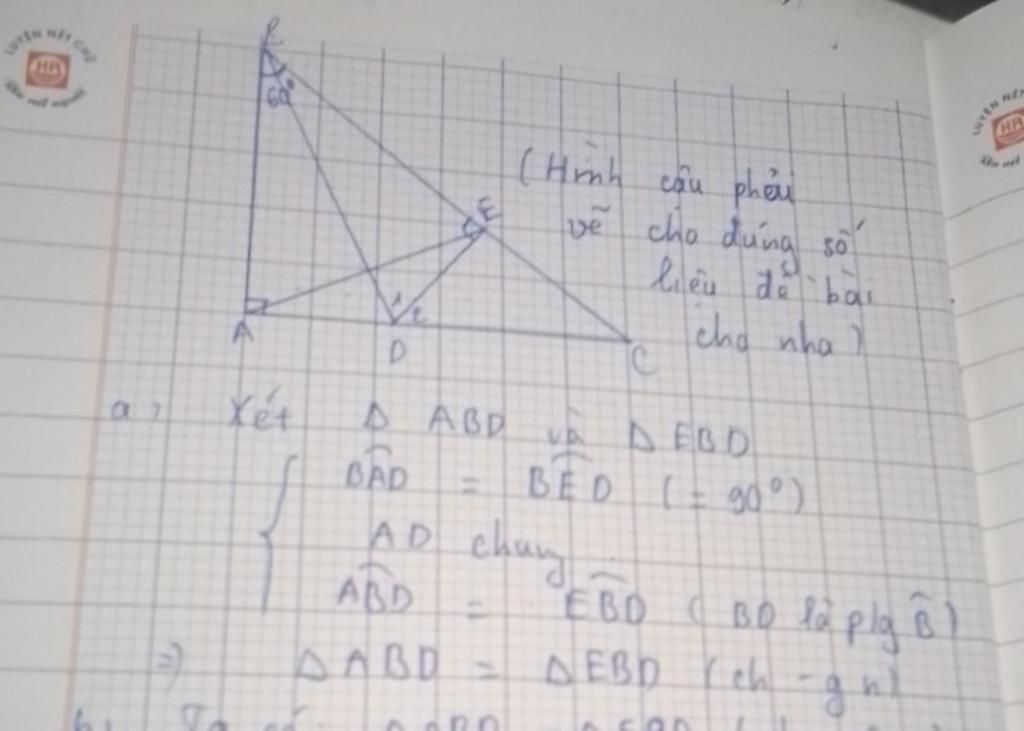 LUYỆN NÉT CHỮ
HA
B
60°
E
(Hình cậu phải
vẽ cho đúng số
liệu đề bài
cho nha)
A
D
C
a, Xét Δ ABD và Δ EBD
BAD = BED (= 90°)
AD chung
ABD = EBD (BD là p/g B)
=> Δ ABD = Δ EBD (ch - gn)